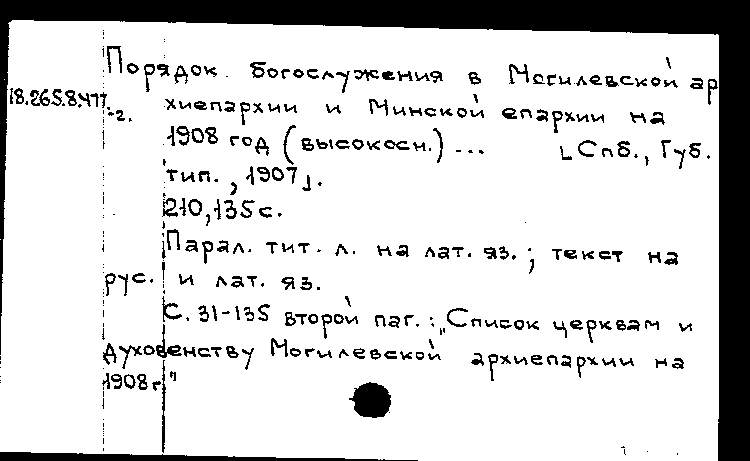 Порядок богослужения в Могилевской ар
18.265.8.477
-2.
хиепархии и Минской епархии на
1908 год (высокосн.) ... [Спб., Губ.
тип., 1907].
210, 135 с.
Парал. тит. л. на лат. яз.; текст на
рус. и лат. яз.
С. 31-135 второй паг.: „Список церквам и
духовенству Могилевской архиепархии на
1908 г."